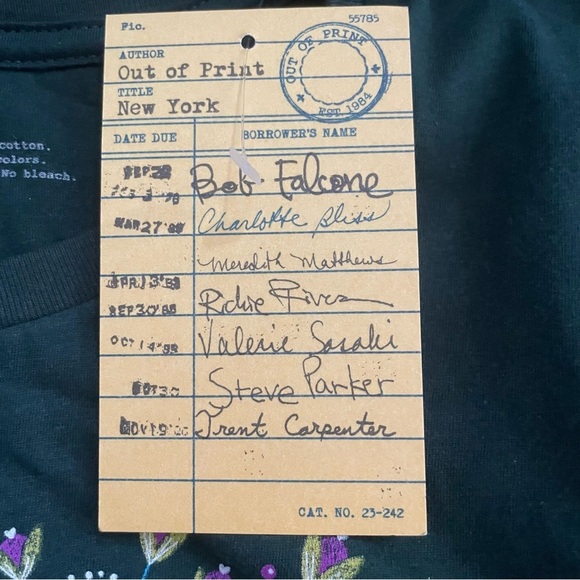 Fic. 55785
AUTHOR
Out of Print
TITLE
New York
OUT OF PRINT
EST. 1984
DATE DUE BORROWER'S NAME
Bob Falcone
MAR 27 Charlotte Bliss
Meredith Matthews
APR 13 Richie
SEP 30 '88
OCT 14 Valerie Sasaki
OCT 30 Steve Parker
NOV 19 Trent Carpenter
CAT. NO. 23-242
cotton.
colors.
No bleach.